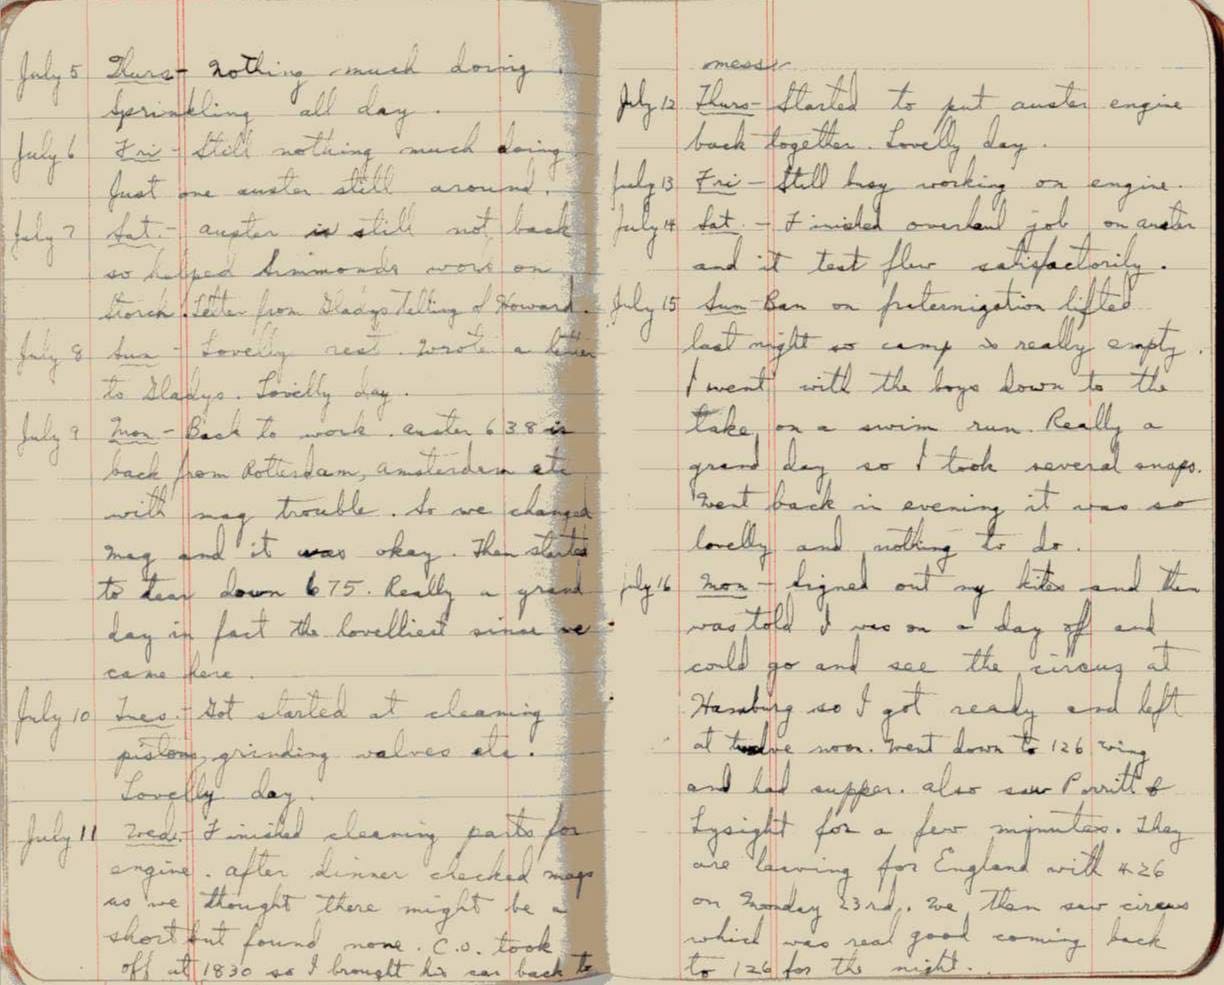 July 5 Thurs - Nothing much doing.
Sprinkling all day.
July 6 Fri - Still nothing much doing.
Just one auster still around.
July 7 Sat. - Auster is still not back
so helped Simmonds work on
Storch. Letter from Gladys telling of Howard.
July 8 Sun - Lovelly rest. Wrote a letter
to Gladys. Lovelly day.
July 9 Mon - Back to work. Auster 638 is
back from Rotterdam, Amsterdam etc
with mag trouble. So we changed
mag and it was okay. Then started
to tear down 675. Really a grand
day in fact the lovelliest since we
came here.
July 10 Tues. - Got started at cleaning
pistons, grinding valves etc.
Lovelly day.
July 11 Wed. - Finished cleaning parts for
engine. After dinner checked mags
as we thought there might be a
short but found none. C.O. took
off at 1830 so I brought his car back to
mess.
July 12 Thurs - Started to put auster engine
back together. Lovelly day.
July 13 Fri - Still busy working on engine.
July 14 Sat. - Finished overhaul job on auster
and it test flew satisfactorily.
July 15 Sun - Ban on fraternization lifted
last night so camp is really empty.
I went with the boys down to the
lake on a swim run. Really a
grand day so I took several snaps.
Went back in evening it was so
lovelly and nothing to do.
July 16 Mon - Signed out my kites and then
was told I was on a day off and
could go and see the circus at
Hamburg so I got ready and left
at twelve noon. Went down to 126 wing
and had supper. Also saw Porritt &
Lysight for a few minutes. They
are leaving for England with 426
on Monday 23rd. We then saw circus
which was real good coming back
to 126 for the night.